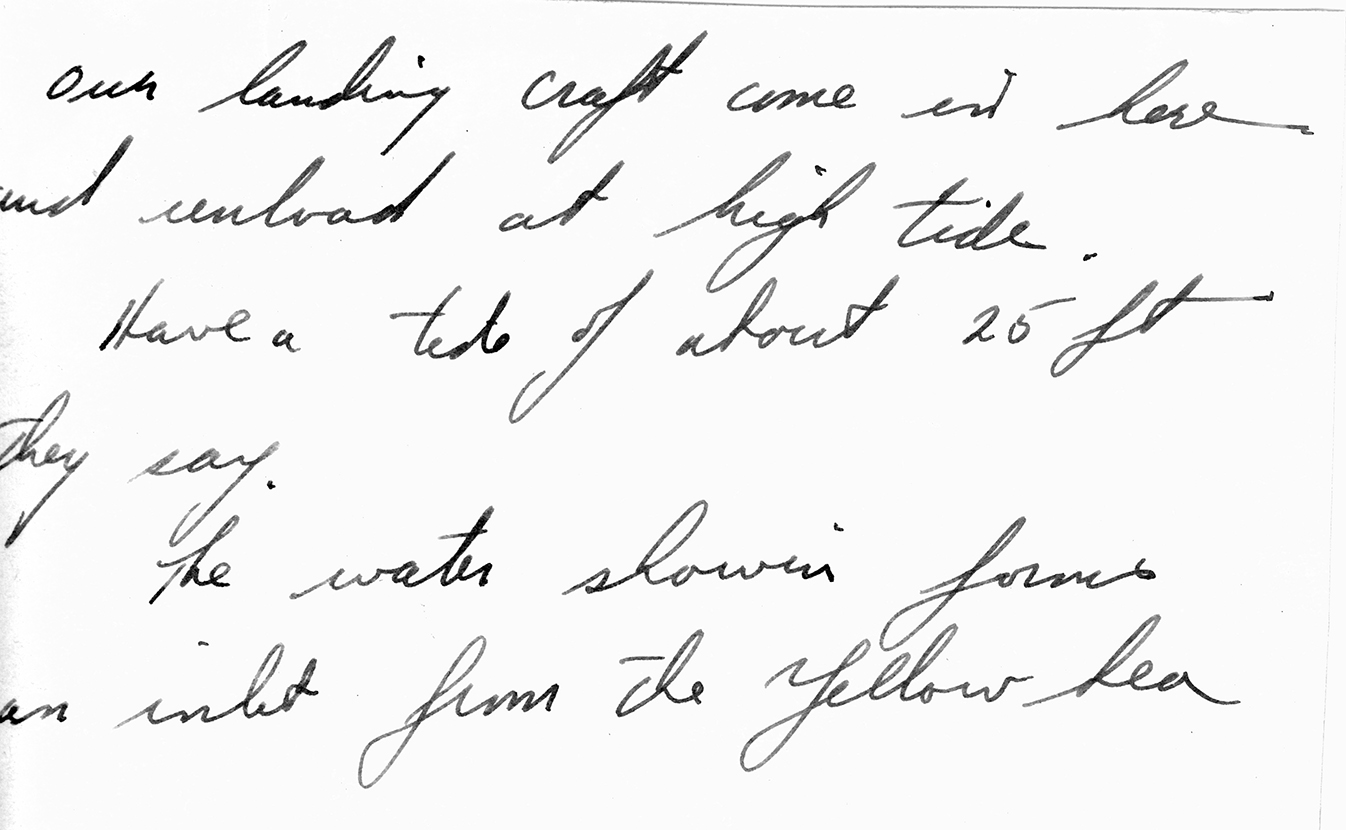 Our landing craft come in here
and unload at high tide.
Have a tide of about 25 ft
they say.
The water showin forms
an inlet from the Yellow Sea